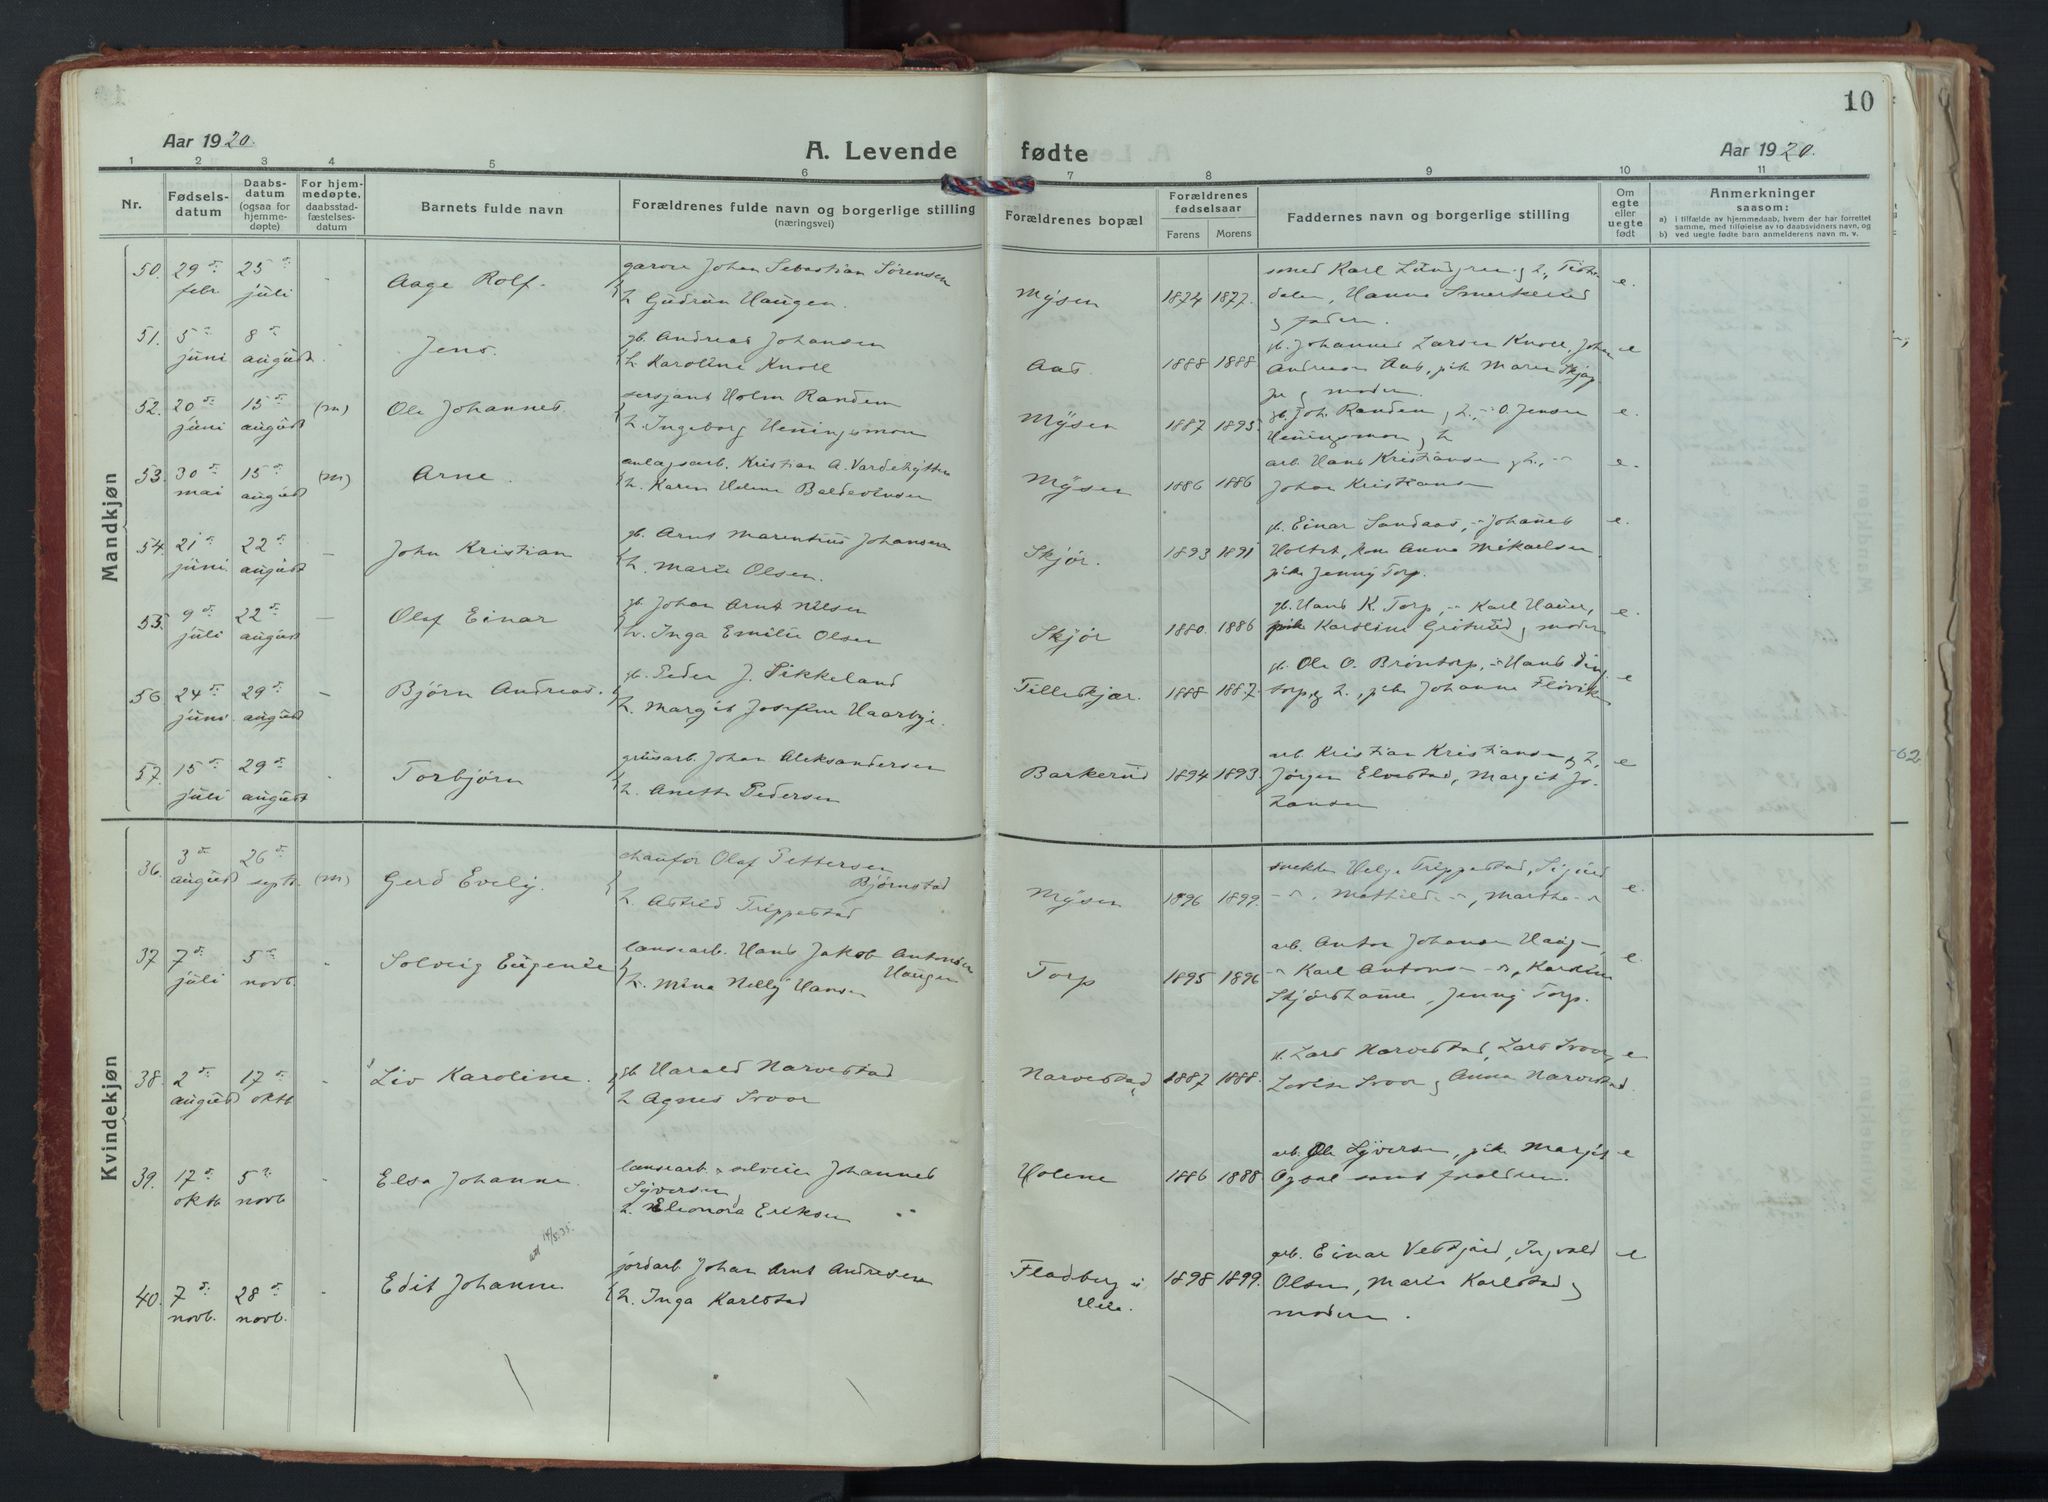 10
Aar 1920.
A. Levende fødte
Aar 1920.
1 2 3 4 5 6 7 8 9 10 11
Nr.
Fødsels-
datum
Daabs-
datum
(ogsaa for
hjemme-
døpte)
For hjem-
medøpte,
daabsstad-
fæstelses-
datum
Barnets fulde navn
Forældrenes fulde navn og borgerlige stilling
(næringsvei)
Forældrenes bopæl
Forældrenes
fødselsaar
Farens Morens
Faddernes navn og borgerlige stilling
Om
egte
eller
uegte
født
Anmerkninger
saasom:
a) i tilfælde av hjemmedaab, hvem der har forrettet
samme, med tilføielse av to daabsvidners navn, og
b) ved uegte fødte barn anmelderens navn m. v.
Mandkjøn
50. 29 febr. 25 juli Aage Rolf.
garver Johan Sebastian Sørensen
h. Gudrun Haugen.
Mysen 1874 1877.
smed Karl Lundgren og h.,
Hanna
og fader. e.
51. 5 juni 8 august Jens.
gb. Andreas Johansen
h. Karoline Knoll
Aas 1888 1888
gb. Johannes Larsen Knoll, Johan
Andresen Aas, pike Marie
og moder. e
52. 20 juni 15 august (m) Ole Johannes.
sersjant Holm Randem
h. Ingeborg Henningsmoen
Mysen 1887 1895
gb. Joh. Randem og h., -"- O. Jensen
Henningsmoen og h e.
53. 30 mai 15 august (m) Arne.
anlægsarb. Kristian A. Vardehytten
h. Karen Helene Baldevinsen
Mysen 1886 1886
arb. Hans Kristiansen og h., -"-
Johan Kristiansen e.
54. 21 juni. 22 august — John Kristian
gb. Arnt Marentius Johansen
h. Marie Olsen.
Skjør. 1893 1891
gb. Einar Sandaas, -"- Johannes
Holtet, kone Anna Mikaelsen
pike Jenny Torp. e.
55. 9 juli 22 august — Olaf Einar
gb. Johan Arnt Nilsen
h. Inga Emilie Olsen
Skjør 1880. 1886
gb. Hans K. Torp, -"- Karl Hauer,
pike Karoline og moder e.
56 24 juni. 29 august - Bjørn Andreas.
gb. Peder J. Sikkeland
h. Margit Josefine Haarbye.
Tilleskjær. 1888 1887.
gb. Ole O. Brøntorp, -"- Hans
torp og h., pike Johanne Fløviken e
57. 15 juli 29 august Torbjørn
grusarb. Johan Aleksandersen
h. Anette Pedersen
Barkerud 1894 1893.
arb. Kristian Kristiansen og h,
Jørgen Elvestad, Margit Jo-
hansen e
Kvindekjøn
36. 3 august 26 sept. (m) Gerd Evely.
chaufør Olaf Pettersen
Bjørnstad
h. Astrid Trippestad
Mysen 1896 1899.
snekker Helge Trippestad, Sigurd
-"-, Mathilde -"-, Martha -"- e.
37 7 juli 5 novb. Solveig Eugenie
lænsearb. Hans Jakob Antonsen
Haugen
h. Mina Nelly Hansen
Torp 1895 1896
arb. Anton Johansen Haugen,
-"- Karl Antons- -"-, Karoline
Skjørshammer, Jenny Torp. e.
38. 2 august 17 oktb Liv Karoline.
gb Harald Narvestad
h Agnes Svoor
Narvestad 1887 1888.
Lars Narvestad, Lars Svoor,
Lovise Svoor og Anna Narvestad. e
39. 17 oktb 5 novb Elsa Johanne.
lænsearb. & selveier Johannes
Syversen
h. Eleonora Eriksen
Holene 1886 1888
arb. Ole Syversen, pike Margit
Opsal samt forældrene. e
att 14/5.35.
40. 7 novb. 28 novb. Edit Johanne
jordarb Johan Arnt Andresen
h. Inga Karlstad
Fladberg i
Hele. 1898 1899.
arb. Einar Vestgård, Ingvald
Olsen, Marie Karlstad og
moderen. e
62